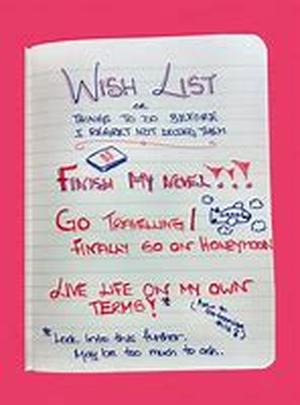 WISH LIST
OR
THINGS TO DO BEFORE
I REGRET NOT DOING THEM
FINISH MY NOVEL!!!
GO TRAVELLING!
FINALLY GO ON HONEYMOON
LIVE LIFE ON MY OWN
TERMS!*
*Look into this further.
May be too much to ask.